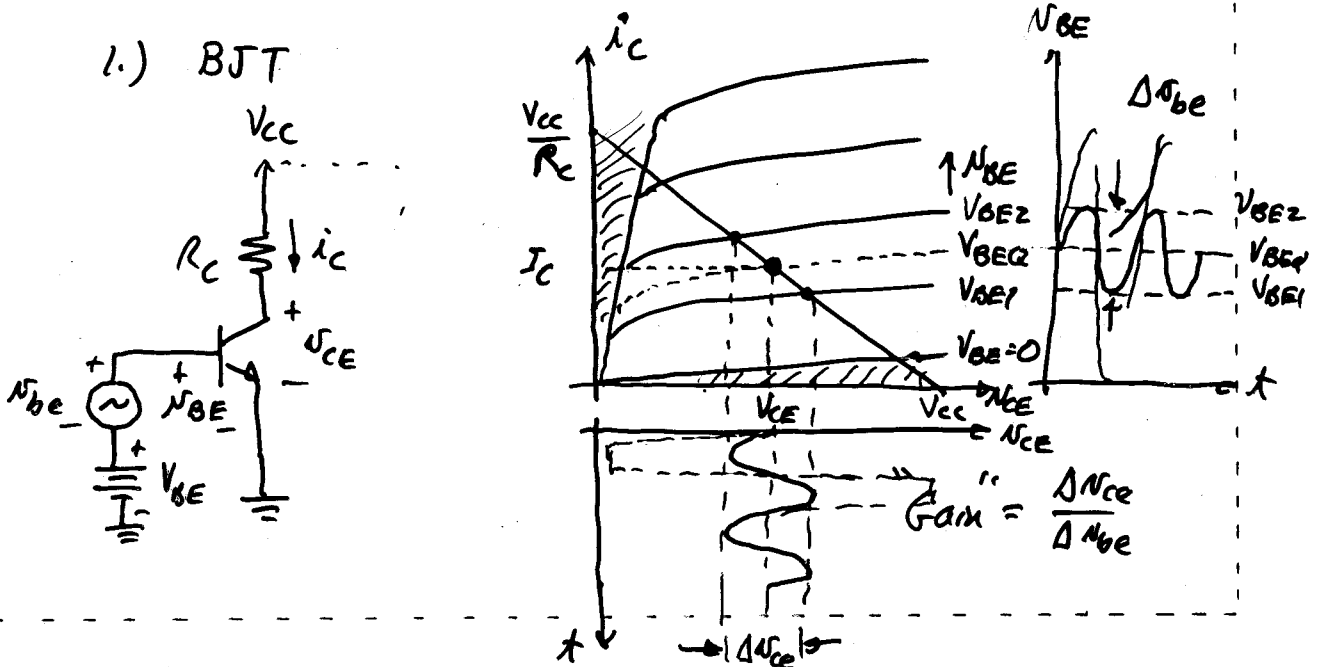 1.) BJT
VCC
RC
iC
+
vCE
-
+
vbe
-
+
vBE
-
+
VBE
-
iC
VCC
RC
IC
vBE
VBE2
VBEQ
VBE1
VBE=0
VCE
VCC
vCE
vCE
t
ΔVce
"Gain" = ΔVce
ΔVbe
vBE
Δvbe
VBE2
VBEQ
VBE1
t